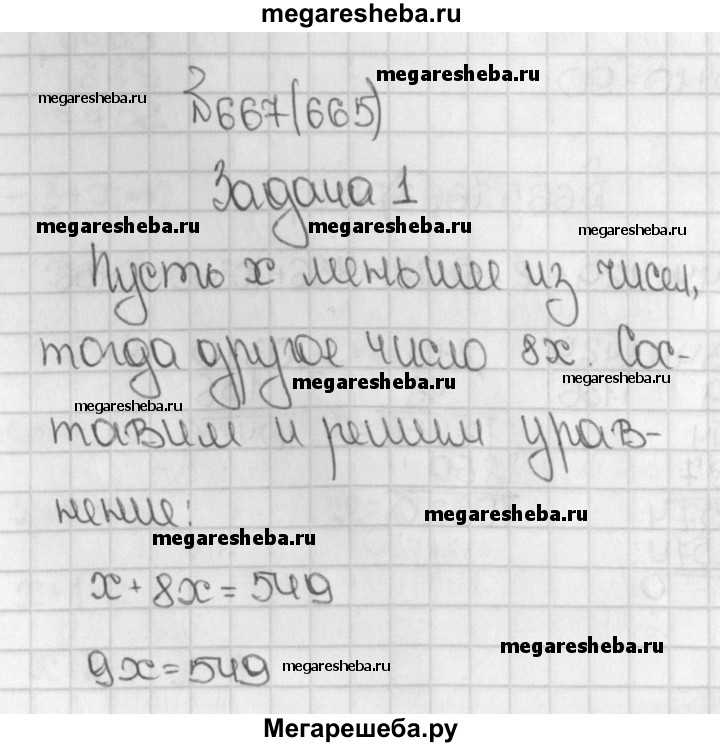 megaresheba.ru
megaresheba.ru
megaresheba.ru
№667(665)
Задача 1
megaresheba.ru megaresheba.ru megaresheba.ru
Пусть x меньшее из чисел,
тогда другое число 8x. Сос-
megaresheba.ru megaresheba.ru
megaresheba.ru
тавим и решим урав-
нение:
megaresheba.ru
megaresheba.ru
x + 8x = 549
megaresheba.ru
9x = 549 megaresheba.ru
Мегарешеба.ру